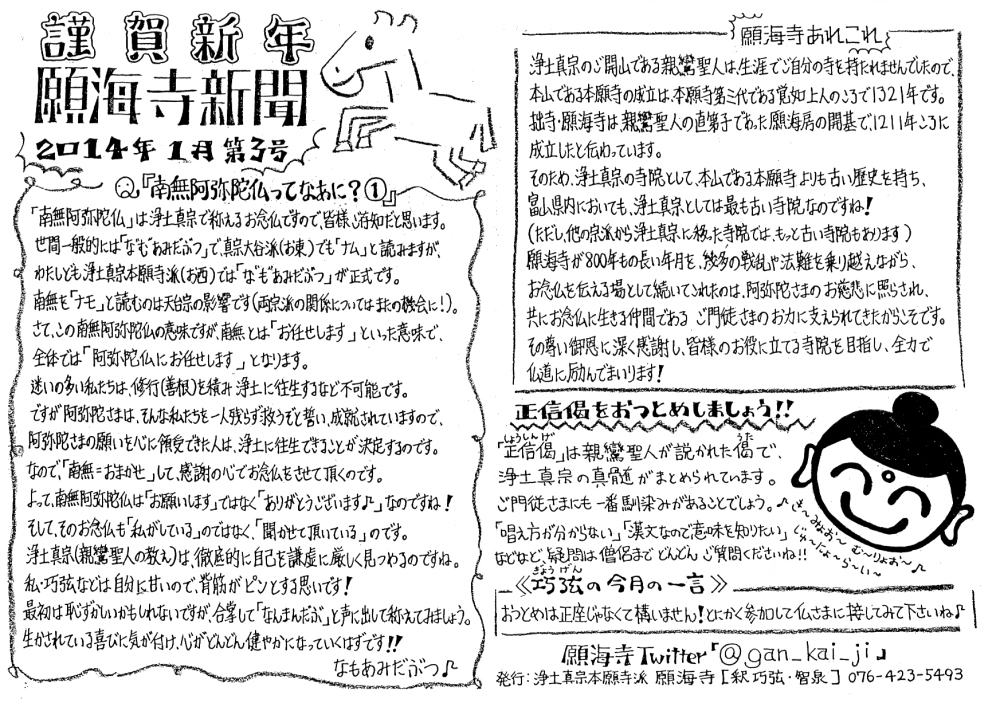 謹賀新年
願海寺新聞
2014年1月第3号
Q『南無阿弥陀仏ってなあに?①』
「南無阿弥陀仏」は浄土真宗で称えるお念仏ですので、皆様ご存知だと思います。
世間一般的には「なむあみだぶつ」で、真宗大谷派(お東)でも「ナム」と読みますが、
わたしども浄土真宗本願寺派(お西)では「なもあみだぶつ」が正式です。
南無を「ナモ」と読むのは天台宗の影響です(両宗派の関係についてはまたの機会に!)。
さて、この南無阿弥陀仏の意味ですが、南無とは「お任せします」といった意味で、
全体では「阿弥陀仏にお任せします」となります。
迷いの多い私たちは、修行(善根)を積み浄土に往生するなど不可能です。
ですが阿弥陀さまは、そんな私たちを一人残らず救うぞと誓い、成就されていますので、
阿弥陀さまの願いを心に領受できた人は、浄土に往生できることが決定するのです。
なので「南無=おまかせ」して、感謝の心でお念仏をさせて頂くのです。
よって、南無阿弥陀仏は「お願いします」ではなく「ありがとうございます♪」なのですね!
そして、そのお念仏も「私がしている」のではなく「聞かせて頂いている」のです。
浄土真宗(親鸞聖人の教え)は、徹底的に自己を謙虚に厳しく見つめるのですね。
私・巧弦などは自分に甘いので、背筋がピンとする思いです!
最初は恥ずかしいかもしれないですが、合掌して「なんまんだぶ」と声に出して称えてみましょう。
生かされている喜びに気が付け、心がどんどん健やかになっていくはずです!!
なもあみだぶつ♪
願海寺あれこれ
浄土真宗のご開山である親鸞聖人は、生涯でご自分の寺を持たれませんでしたので、
本山である本願寺の成立は、本願寺第三代である覚如上人のころで1321年です。
拙寺・願海寺は、親鸞聖人の直弟子であった願海房の開基で、1211年ころに
成立したと伝わっています。
そのため、浄土真宗の寺院として、本山である本願寺よりも古い歴史を持ち、
富山県内においても、浄土真宗としては最も古い寺院なのですね!
(ただし、他の宗派から浄土真宗に移った寺院では、もっと古い寺院もあります)
願海寺が800年もの長い年月を、幾多の戦乱や法難を乗り越えながら、
お念仏を伝える場として続いてこれたのは、阿弥陀さまのお慈悲に照らされ、
共にお念仏に生きる仲間である ご門徒さまのお力に支えられてきたからこそです。
その尊い御恩に深く感謝し、皆様のお役に立てる寺院を目指し、全力で
仏道に励んでまいります!
正信偈をおつとめしましょう!!
「正信偈」は親鸞聖人が説かれた偈で、
しょうしんげ
うた
浄土真宗の真骨道がまとめられています。
ご門徒さまにも一番馴染みがあることでしょう。
「唱え方が分からない」「漢文なので意味を知りたい」
などなど、疑問は僧侶までどんどんご質問くださいね!!
♪き~みょお~む~りょお~♪
じゅ~にょ~ら~い~
《巧弦の今月の一言》
ぎょうげん
おつとめは正座じゃなくて構いません!とにかく参加して仏さまに接してみて下さいね♪
願海寺Twitter「@gan_kai_ji」
発行:浄土真宗本願寺派 願海寺[釈巧弦・智泉] 076-423-5493